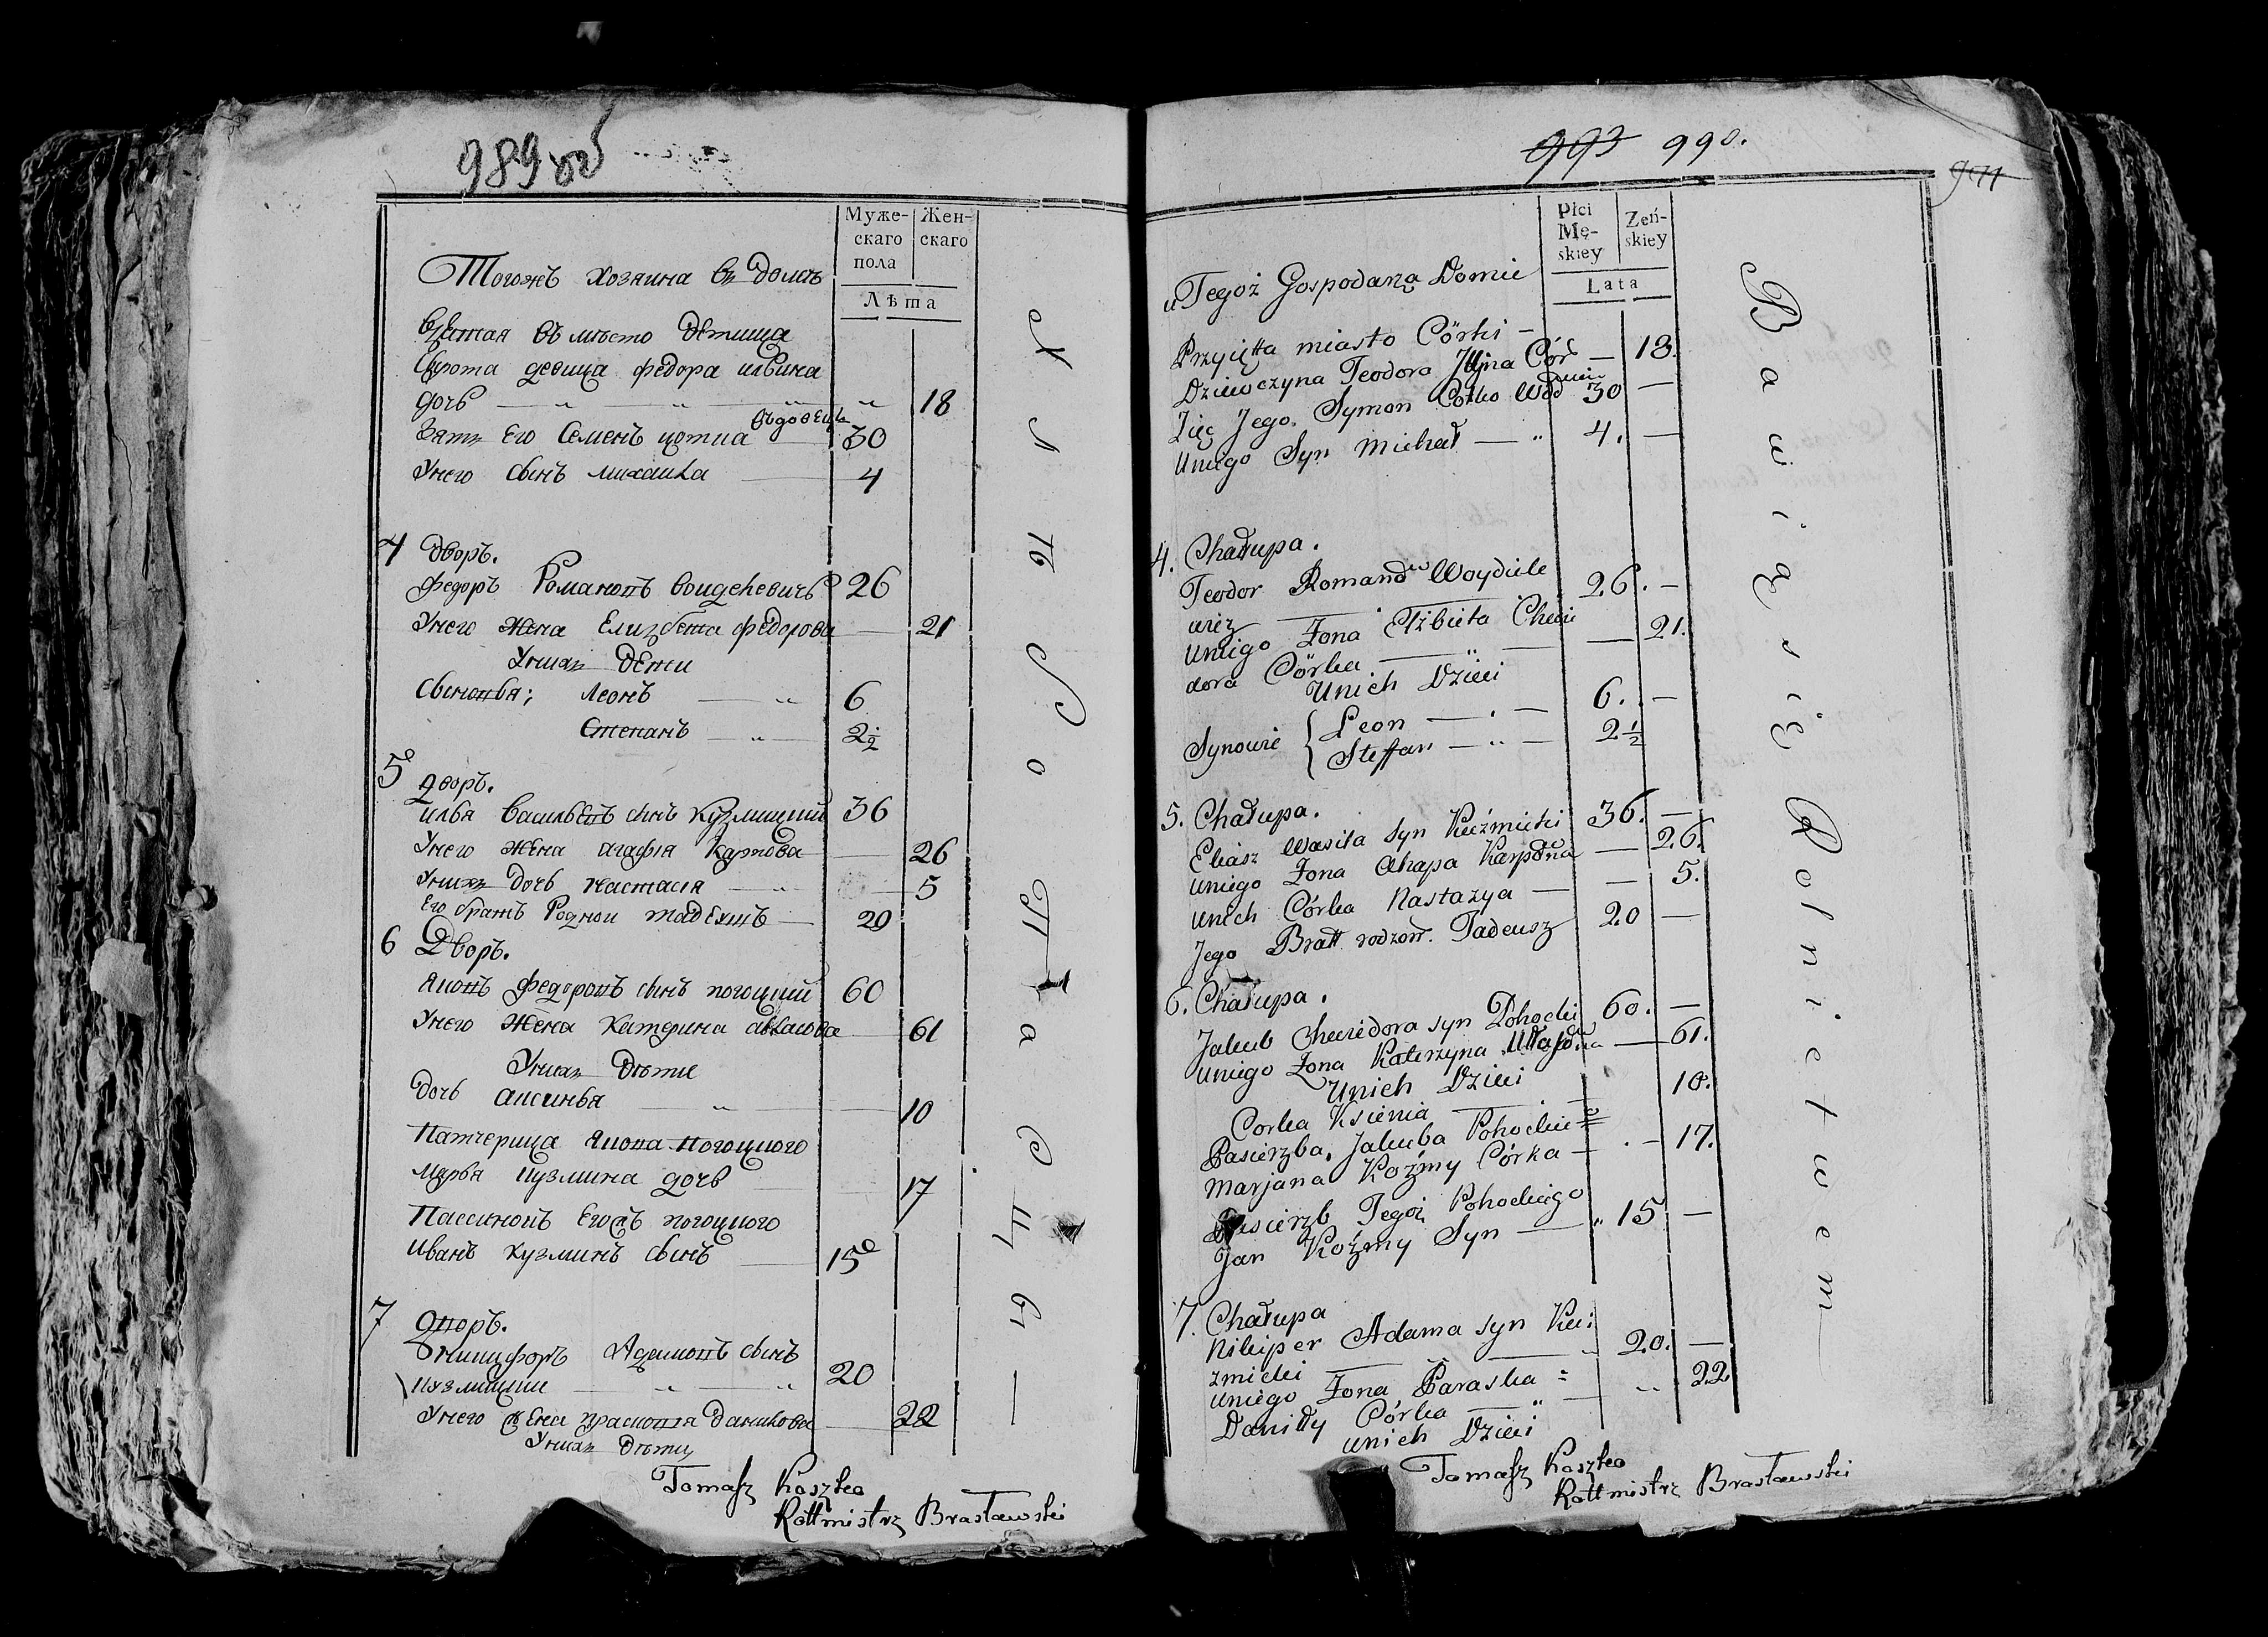 989 об
Муже-
скаго
пола
Жен-
скаго
Лѣта
Тогожъ хозяина въ домѣ
Взятая въ мѣсто детища
Сирота девица федора ильина
дочь — „ — „ — „ „ 18
вдовецъ
Зять Его Семенъ котка — 30
Унего сынъ михалка — 4
4 дворъ.
федоръ Романовъ воидекевичь 26
Унего жена Елизбета федорова — 21
Унихъ дети
Сыновья; Леонъ — „ 6
Степанъ — „ — 2½
5 дворъ.
илья васильевъ сынъ кузмицкий 36
Унего жена агафия карпова — 26
Унихъ дочь настасія — „ — 5
Его братъ Родной тадеушъ — 20
6 Дворъ.
Яковъ федоровъ сынъ погоцкий 60
Унего жена катерина — 61
Унихъ дѣти
дочь аксинья — „ — 10
Патчерица якова погоцкого
Марья кузмина дочь — 17
Пассинокъ Егожъ погоцкого
иванъ кузминъ сынъ — 15
7 дворъ.
никифоръ Адамовъ сынъ
кузмицкии — „ — „ 20
Унего жена прасковья данилова — 22
Унихъ дѣти
Tomasz Koszko
Rottmistrz Brasławski
Хлѣбопашествомъ
993 990.
Płci
Mę-
skiey
Zeń-
skiey
Lata
u Tegoż Gospodarza Domie
Przyięta miasto Córki —
Dziewczyna Teodora Ilijna Cór — 18.
Zięć Jego Symon Cotko Wdowiec 30 —
Uniego Syn Michał — „ 4. —
4. Chałupa.
Teodor Romanow Woydzie
wicz 26. —
Uniego Żona Elżbieta Chwie
dora Córka — „ — 21.
Unich Dzieci
Synowie { Leon — . — 6. —
Steffan — „ — 2½
5. Chałupa.
Eliasz Wasila Syn Kuźmicki 36. —
Uniego Żona Ahapa Karpowna — 26.
Unich Córka Nastazya — — 5.
Jego Bratt rodzon. Tadeusz 20 —
6. Chałupa.
Jakub Chwiedora syn Pohocki 60. —
Uniego Żona Katerzyna — 61.
Unich Dzieci
Corka Ksienia — 10.
Pasierzba Jakuba Pohockie=
Marjana Koźmy Córka — . — 17.
Pasierzb Tegoż Pohockiego
Jan Koźmy Syn — „ 15 —
7. Chałupa
Nikiper Adama syn Kuź
zmicki — „ 20. —
Uniego Żona Paraska =
Daniłły Córka — „ — „ 22
Unich Dzieci
Tomasz Koszko
Rottmistrz Brasławski
Bawią się Rolnictwem